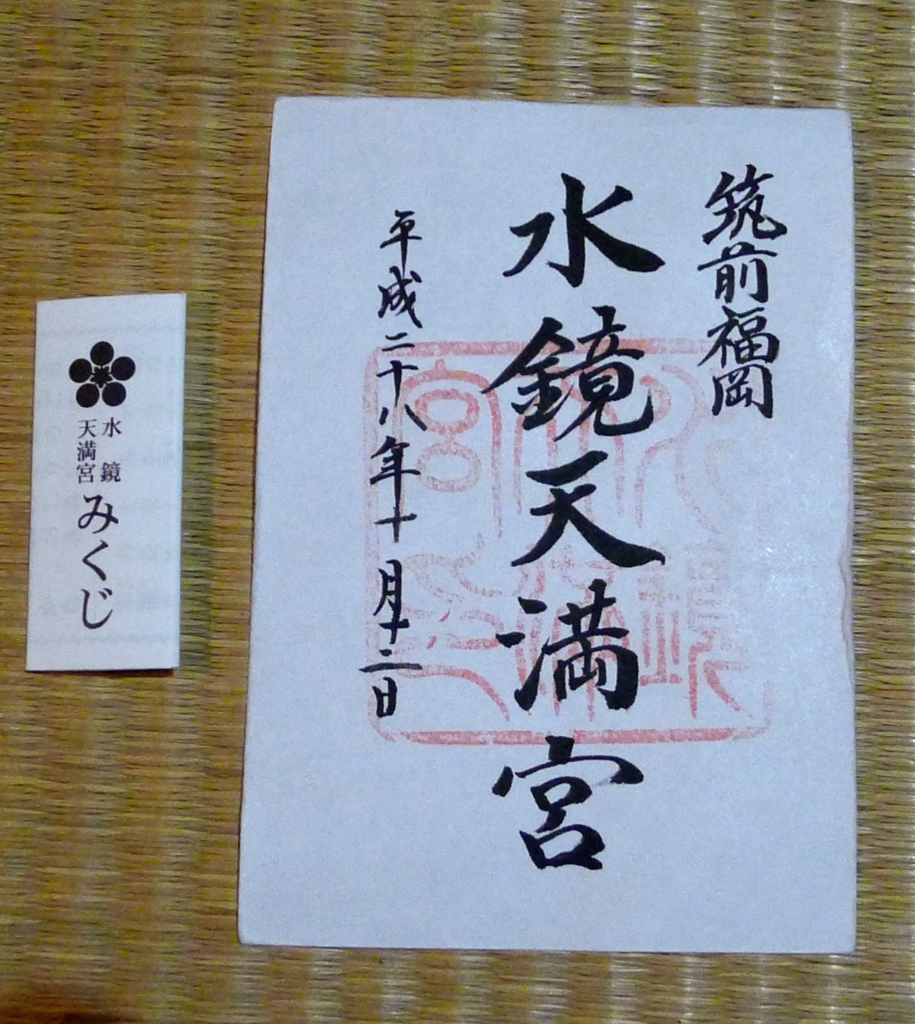 筑前福岡
水鏡天満宮
平成二十八年十月十二日
水鏡
天満宮
みくじ